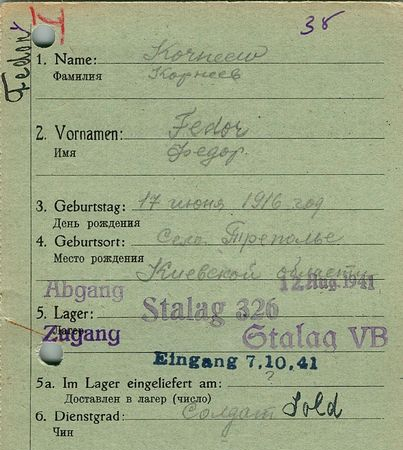 Fedor
38
1. Name: Korneew
Фамилия Корнеев
2. Vornamen: Fedor
Имя Федор.
3. Geburtstag: 17 июня 1916 год
День рождения
4. Geburtsort: Село Треполье
Место рождения
Киевской области
Abgang 12. Aug. 1941
5. Lager: Stalag 326
Лагерь
Zugang Stalag VB
Eingang 7.10.41
5a. Im Lager eingeliefert am: ?
Доставлен в лагерь (число)
6. Dienstgrad: Солдат Sold
Чин